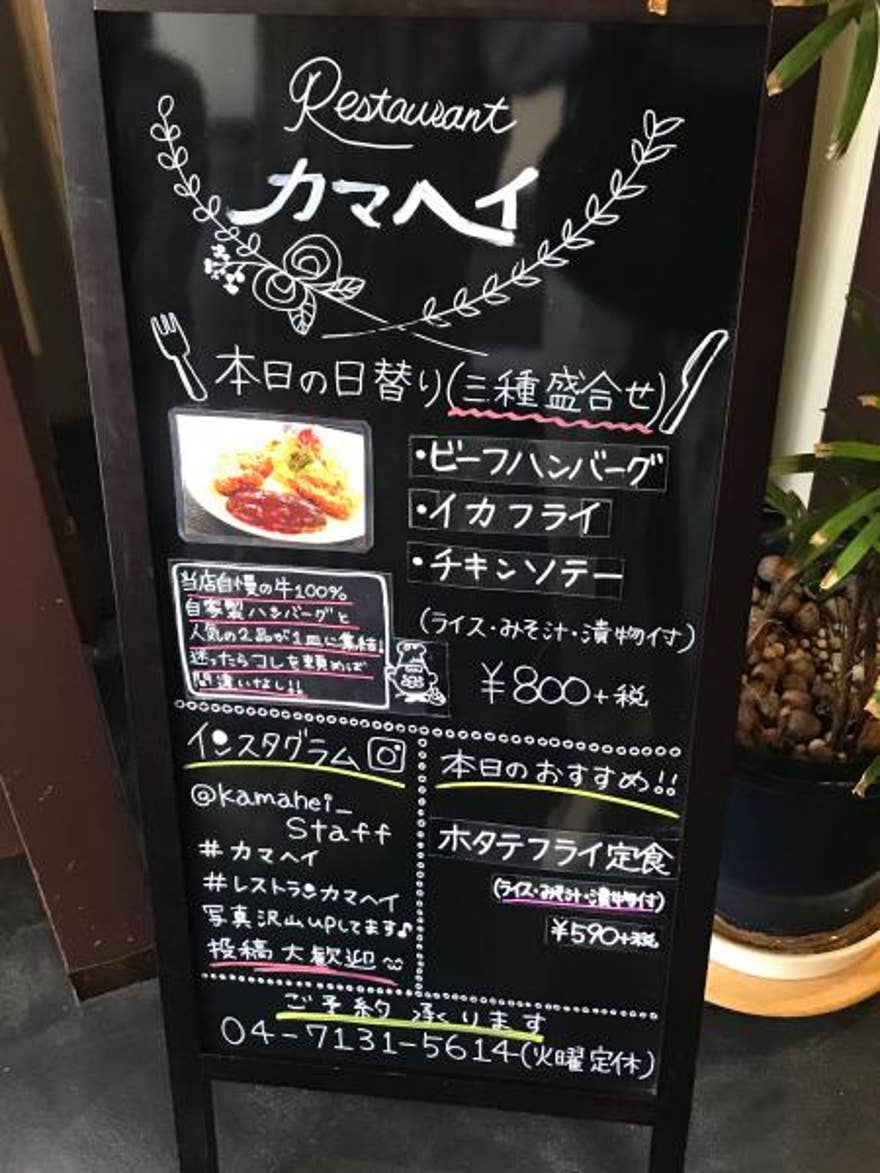 Restaurant
カマヘイ
本日の日替り(三種盛合せ)
・ビーフハンバーグ
・イカフライ
・チキンソテー
(ライス・みそ汁・漬物付)
¥800+税
当店自慢の牛100%
自家製ハンバーグと
人気の2品が1皿に集結!
迷ったらコレを頼めば
間違いなし!!
インスタグラム
@kamahei_
staff
#カマヘイ
#レストランカマヘイ
写真沢山upしてます♪
投稿大歓迎
本日のおすすめ!!
ホタテフライ定食
(ライス・みそ汁・漬物付)
¥590+税
ご予約承ります
04-7131-5614(火曜定休)